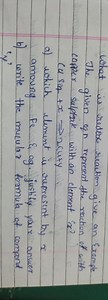 What is auto oxidation give an Example
The given eqn represent the reaction of with
copper sulphate with an element (x)
Cu SO4 + x →
a) which element is represent by x
among Fe & ag. justify your answer
b) write the molecular formula of compound
"y"